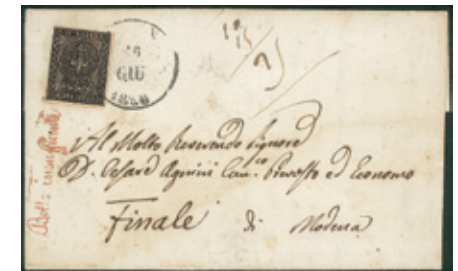 16
GIU
Bollo insufficiente
Al Molto Reverendo Signore
D. Cesare Can.co Prevosto ed Economo
Finale di Modena